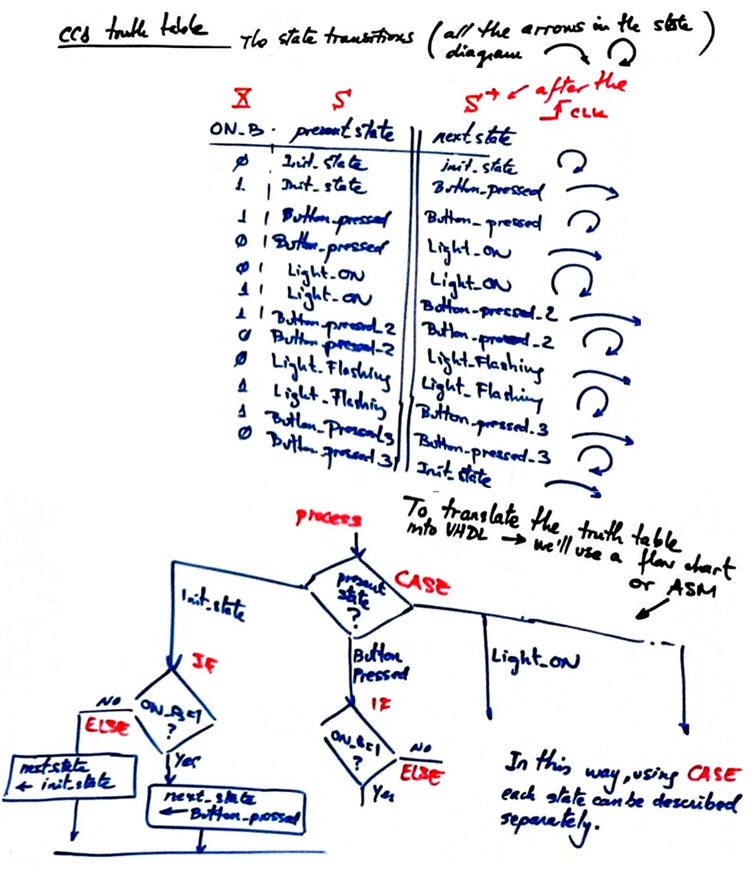 CC1 truth table
The state transitions (all the arrows in the state
diagram )
X S S+ ← after the
CLK
ON_B present state next state
0 Init_state init_state
1 Init_state Button_pressed
1 Button_pressed Button_pressed
0 Button_pressed Light_ON
0 Light_ON Light_ON
1 Light_ON Button_pressed_2
1 Button_pressed_2 Button_pressed_2
0 Button_pressed_2 Light_Flashing
0 Light_Flashing Light_Flashing
1 Light_Flashing Button_pressed_3
1 Button_Pressed3 Button_pressed_3
0 Button_pressed_3 Init_state
To translate the truth table
into VHDL → we'll use a flow chart
or ASM
process
present
state
?
CASE
Init_state
Button
Pressed
Light_ON
...
IF
ON_B=1
?
NO
ELSE
Yes
next_state
← init_state
next_state
← Button_pressed
IF
ON_B=1
?
NO
ELSE
Yes
In this way, using CASE
each state can be described
separately.